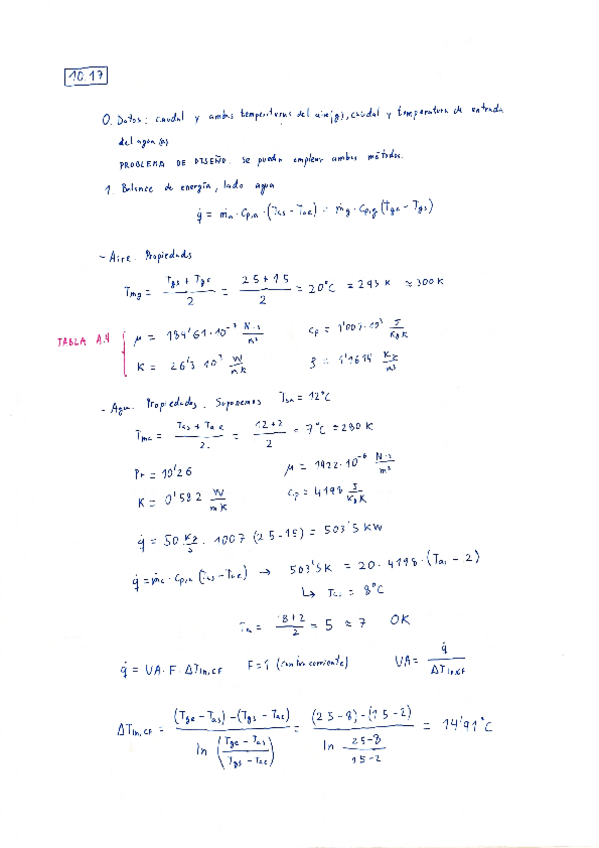 10.17
0. Datos: caudal y ambas temperaturas del aire(g), caudal y temperatura de entrada
del agua (a)
PROBLEMA DE DISEÑO. Se pueden emplear ambos métodos.
1. Balance de energía, lado agua
q̇ = ṁa · Cp,a · (Tas - Tae) = ṁg · Cp,g (Tge - Tgs)
- Aire. Propiedades
Tmg = (Tgs + Tge)/2 = (25 + 15)/2 = 20°C ≈ 293 K ≈ 300K
TABLA A.4
μ = 184'61·10⁻⁷ N·s/m² Cp = 1'007·10³ J/KgK
K = 26'3·10⁻³ W/mK ρ = 1'1614 Kg/m³
- Agua. Propiedades. Suponemos Tsa = 12°C
Tma = (Tas + Tae)/2 = (12+2)/2 = 7°C ≈ 280 K
Pr = 10'26 μ = 1422·10⁻⁶ N·s/m²
K = 0'582 W/mK Cp = 4198 J/KgK
q̇ = 50 Kg/s · 1007 (25-15) = 503'5 KW
q̇ = ṁa · Cp,a (Tas - Tae) → 503'5K = 20 · 4198 · (Tas - 2)
↳ Tas = 8°C
= (8+2)/2 = 5 ≈ 7 OK
q̇ = UA·F·ΔTln,CF F=1 (contracorriente) UA = q̇/ΔTln,CF
ΔTln,CF = ((Tge - Tas) - (Tgs - Tae))/(ln((Tge - Tas)/(Tgs - Tae))) = ((25-8) - (15-2))/(ln (25-8)/(15-2)) = 14'91°C